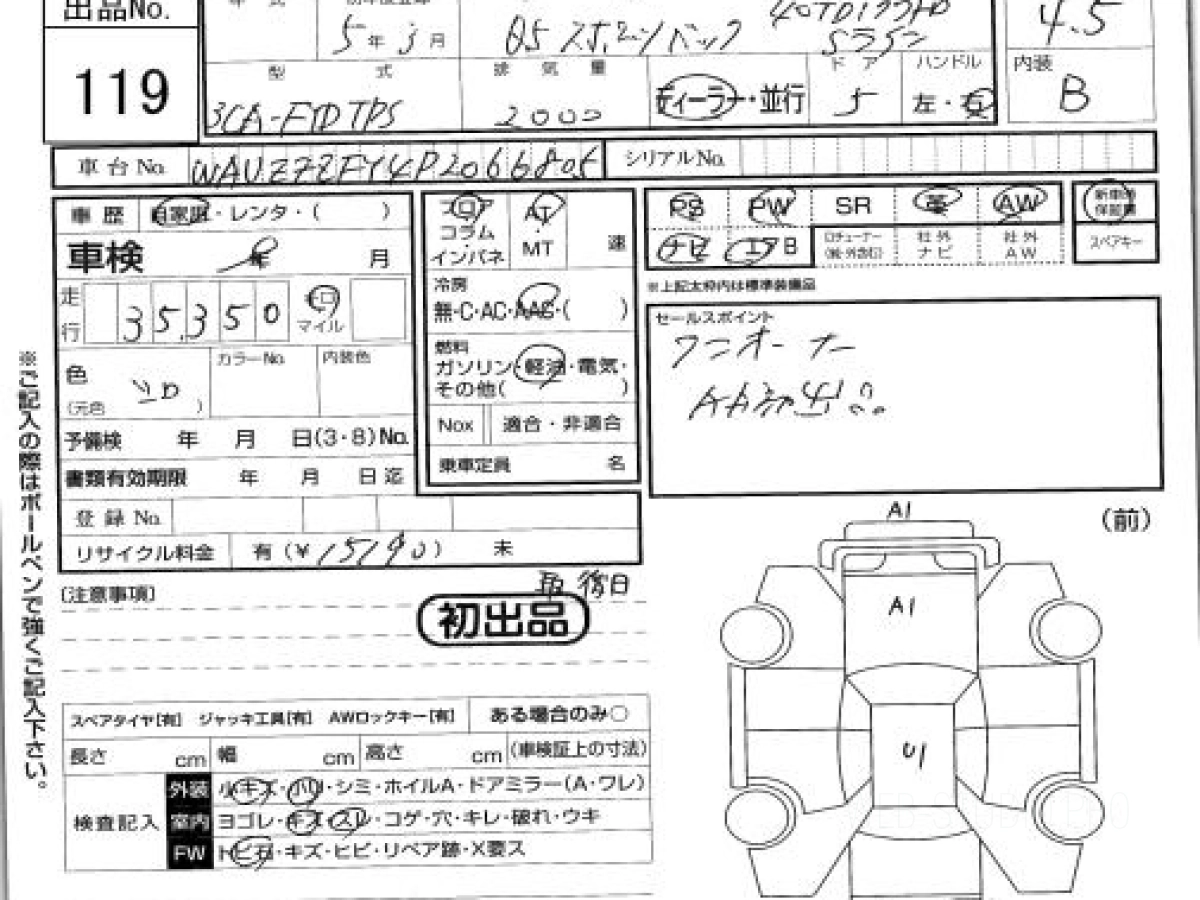 出品No.
119
年 式
5年3月
Q5 スポーツバック
40TDIクワトロ
Sライン
4.5
型 式
3CA-FYDTPS
排 気 量
2000
ディーラー・並行
ドア
5
ハンドル
左・右
内装
B
車台No. WAUZZZFY4P2066805
シリアルNo.
車歴 自家用・レンタ・( )
車検 年 月
走行 35,350 キロ マイル
色 シロ
(元色 )
カラーNo.
内装色
予備検 年 月 日(3・8)No.
書類有効期限 年 月 日迄
登録No.
リサイクル料金 有(¥15190) 未
フロア
コラム
インパネ
AT
MT
速
冷房
無・C・AC・AAC・( )
燃料
ガソリン・軽油・電気・
その他( )
Nox 適合・非適合
乗車定員 名
PS PW SR 革 AW
ナビ エアB
ロチューナー
(純・外含む)
社外
ナビ
社外
AW
新車時
保証書
スペアキー
※上記太枠内は標準装備品
セールスポイント
ワンオーナー
AA初出品
※ご記入の際はボールペンで強くご記入下さい。
(注意事項)
最終日
初出品
スペアタイヤ[有] ジャッキ工具[有] AWロックキー[有] ある場合のみ○
長さ cm 幅 cm 高さ cm (車検証上の寸法)
検査記入
外装 小キズ・ハリ・シミ・ホイルA・ドアミラー(A・ワレ)
室内 ヨゴレ・キズ・スレ・コゲ・穴・キレ・破れ・ウキ
FW トビ石・キズ・ヒビ・リペア跡・X要ス
(前)
A1
A1
U1